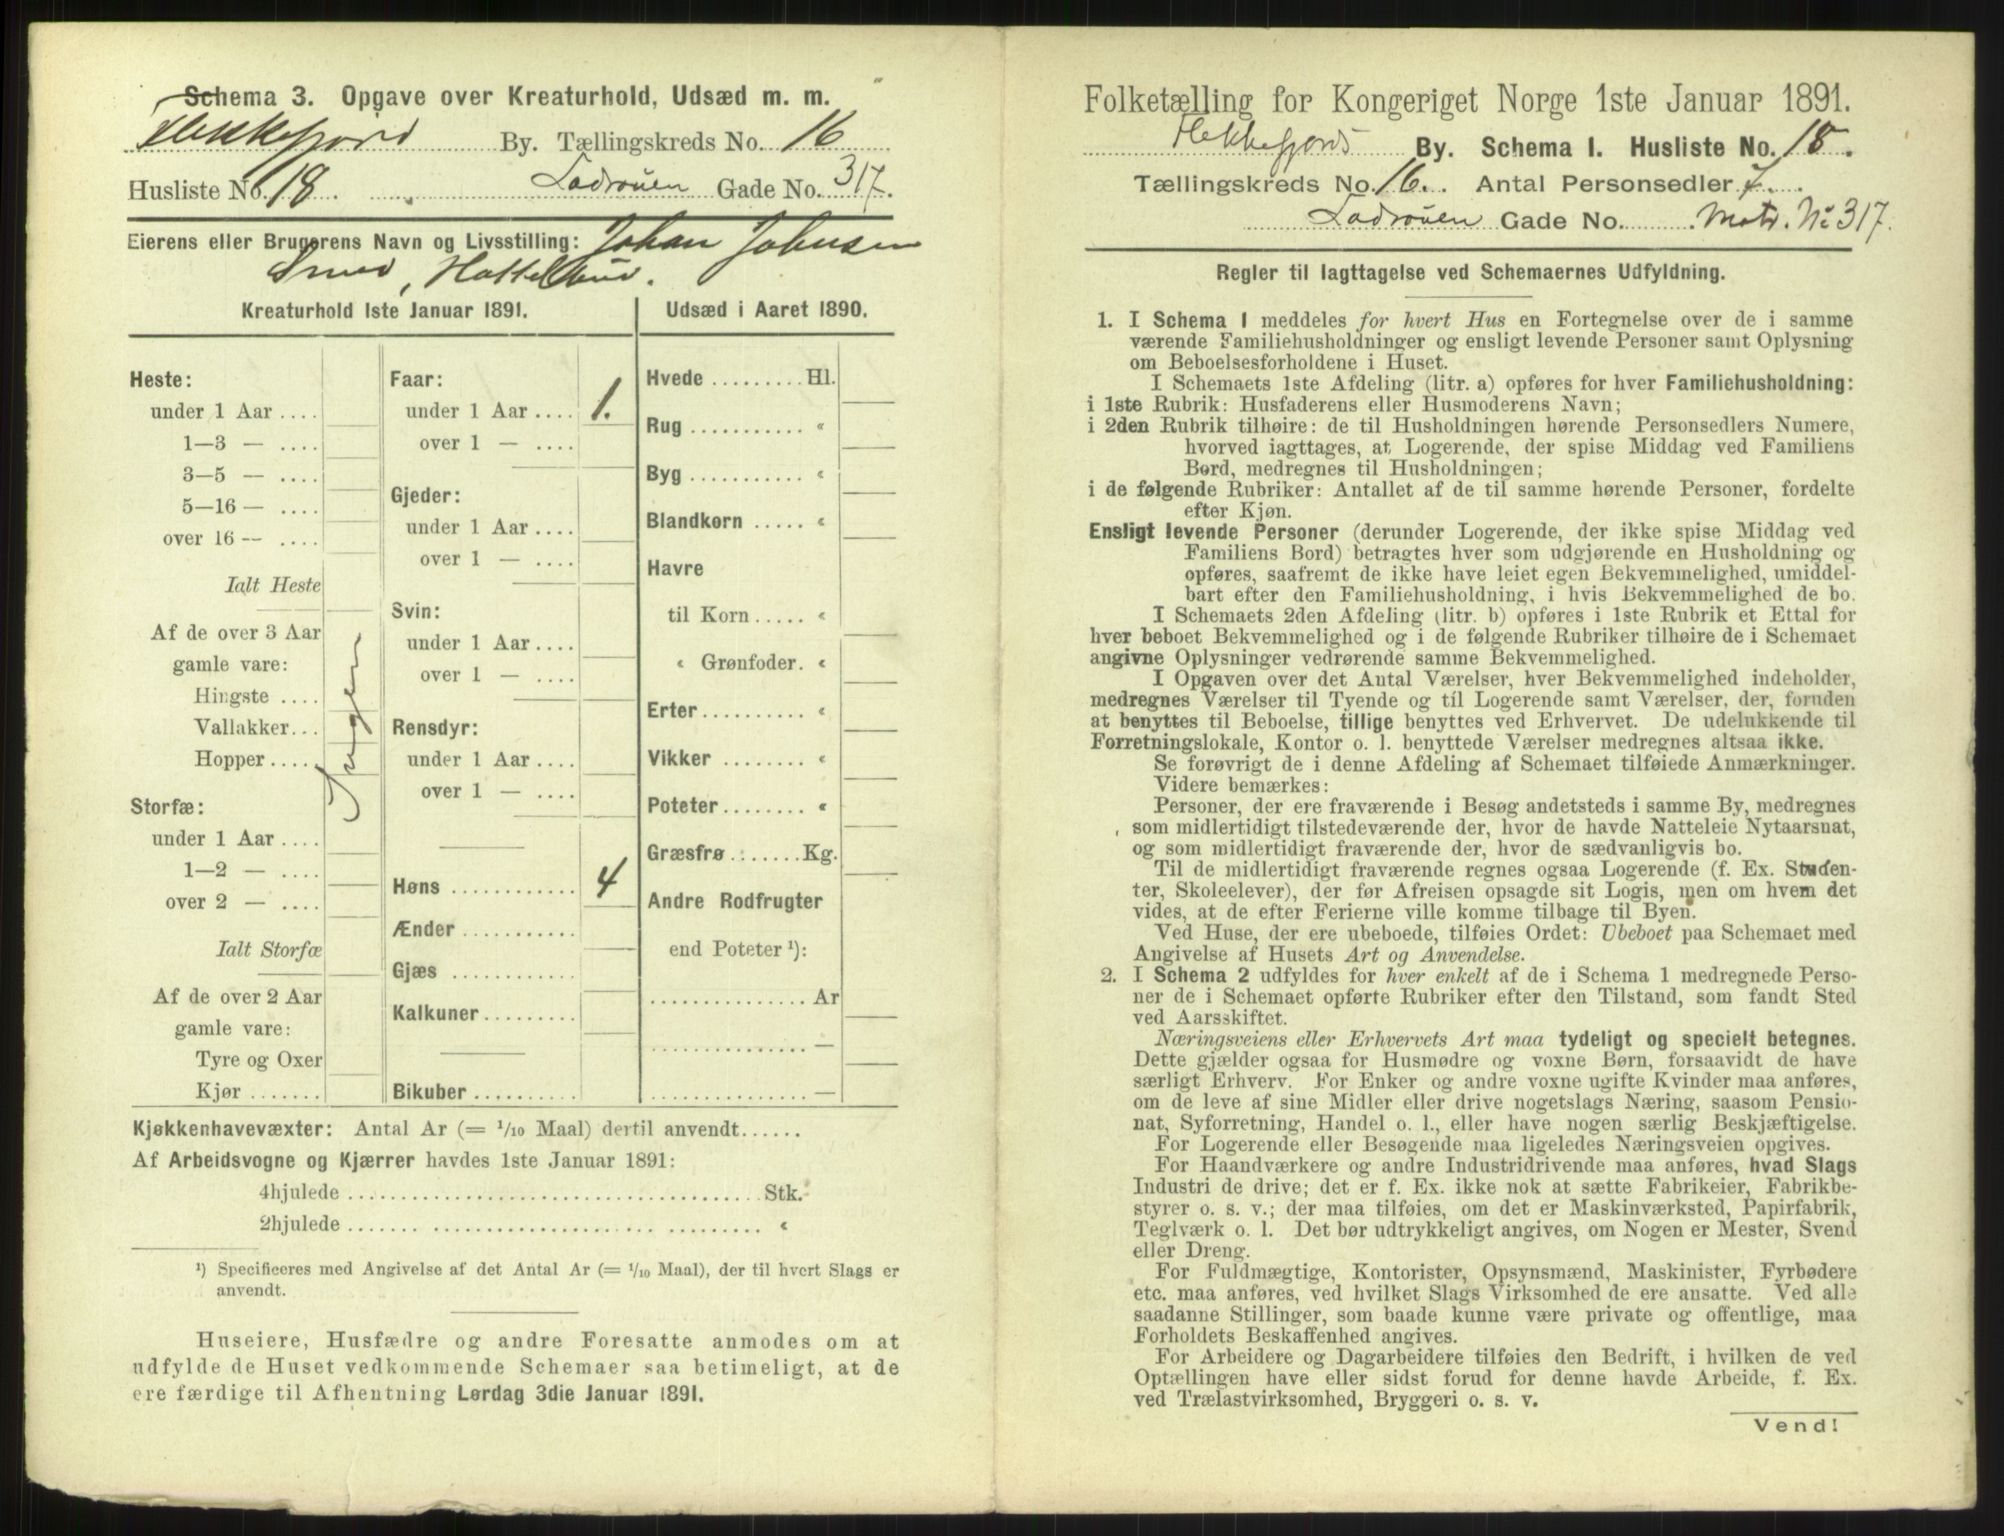 Schema 3. Opgave over Kreaturhold, Udsæd m. m.
Flekkefjord By. Tællingskreds No. 16
Husliste No. 18. Gade No. 317.
Eierens eller Brugerens Navn og Livsstilling: Johan Johnsen
Smed,
Kreaturhold 1ste Januar 1891.
Heste:
under 1 Aar ....
1—3 — ....
3—5 — ....
5—16 — ....
over 16 — ....
Ialt Heste
Af de over 3 Aar
gamle vare:
Hingste ....
Vallakker...
Hopper .....
Storfæ:
under 1 Aar ....
1—2 — ....
over 2 — ....
Ialt Storfæ
Af de over 2 Aar
gamle vare:
Tyre og Oxer
Kjør .......
Ingen
Faar:
under 1 Aar .... 1.
over 1 — ....
Gjeder:
under 1 Aar ....
over 1 — ....
Svin:
under 1 Aar ....
over 1 — ....
Rensdyr:
under 1 Aar ....
over 1 — ....
Høns ............ 4
Ænder ...........
Gjæs ............
Kalkuner.........
Bikuber ..........
Udsæd i Aaret 1890.
Hvede ......... Hl.
Rug ........... «
Byg ........... «
Blandkorn ..... «
Havre
til Korn ..... «
« Grønfoder. «
Erter.......... «
Vikker ........ «
Poteter ........ «
Græsfrø ....... Kg.
Andre Rodfrugter
end Poteter ¹):
............... Ar
............... —
............... —
Kjøkkenhavevæxter: Antal Ar (= 1/10 Maal) dertil anvendt......
Af Arbeidsvogne og Kjærrer havdes 1ste Januar 1891:
4hjulede ........................................ Stk.
2hjulede ........................................ «
¹) Specificeres med Angivelse af det Antal Ar (= 1/10 Maal), der til hvert Slags er
anvendt.
Huseiere, Husfædre og andre Foresatte anmodes om at
udfylde de Huset vedkommende Schemaer saa betimeligt, at de
ere færdige til Afhentning Lørdag 3die Januar 1891.
Folketælling for Kongeriget Norge 1ste Januar 1891.
Flekkefjords By. Schema I. Husliste No. 18.
Tællingskreds No. 16. Antal Personsedler 7.
Gade No. Matr. No 317.
Regler til Iagttagelse ved Schemaernes Udfyldning.
1. I Schema I meddeles for hvert Hus en Fortegnelse over de i samme
værende Familiehusholdninger og ensligt levende Personer samt Oplysning
om Beboelsesforholdene i Huset.
I Schemaets 1ste Afdeling (litr. a) opføres for hver Familiehusholdning:
i 1ste Rubrik: Husfaderens eller Husmoderens Navn;
i 2den Rubrik tilhøire: de til Husholdningen hørende Personsedlers Numere,
hvorved iagttages, at Logerende, der spise Middag ved Familiens
Bord, medregnes til Husholdningen;
i de følgende Rubriker: Antallet af de til samme hørende Personer, fordelte
efter Kjøn.
Ensligt levende Personer (derunder Logerende, der ikke spise Middag ved
Familiens Bord) betragtes hver som udgjørende en Husholdning og
opføres, saafremt de ikke have leiet egen Bekvemmelighed, umiddel-
bart efter den Familiehusholdning, i hvis Bekvemmelighed de bo.
I Schemaets 2den Afdeling (litr. b) opføres i 1ste Rubrik et Ettal for
hver beboet Bekvemmelighed og i de følgende Rubriker tilhøire de i Schemaet
angivne Oplysninger vedrørende samme Bekvemmelighed.
I Opgaven over det Antal Værelser, hver Bekvemmelighed indeholder,
medregnes Værelser til Tyende og til Logerende samt Værelser, der, foruden
at benyttes til Beboelse, tillige benyttes ved Erhvervet. De udelukkende til
Forretningslokale, Kontor o. l. benyttede Værelser medregnes altsaa ikke.
Se forøvrigt de i denne Afdeling af Schemaet tilføiede Anmærkninger.
Videre bemærkes:
Personer, der ere fraværende i Besøg andetsteds i samme By, medregnes
som midlertidigt tilstedeværende der, hvor de havde Natteleie Nytaarsnat,
og som midlertidigt fraværende der, hvor de sædvanligvis bo.
Til de midlertidigt fraværende regnes ogsaa Logerende (f. Ex. Studen-
ter, Skoleelever), der før Afreisen opsagde sit Logis, men om hvem det
vides, at de efter Ferierne ville komme tilbage til Byen.
Ved Huse, der ere ubeboede, tilføies Ordet: Ubeboet paa Schemaet med
Angivelse af Husets Art og Anvendelse.
2. I Schema 2 udfyldes for hver enkelt af de i Schema 1 medregnede Perso-
ner de i Schemaet opførte Rubriker efter den Tilstand, som fandt Sted
ved Aarsskiftet.
Næringsveiens eller Erhvervets Art maa tydeligt og specielt betegnes.
Dette gjælder ogsaa for Husmødre og voxne Børn, forsaavidt de have
særligt Erhverv. For Enker og andre voxne ugifte Kvinder maa anføres,
om de leve af sine Midler eller drive nogetslags Næring, saasom Pensio-
nat, Syforretning, Handel o. l., eller have nogen særlig Beskjæftigelse.
For Logerende eller Besøgende maa ligeledes Næringsveien opgives.
For Haandværkere og andre Industridrivende maa anføres, hvad Slags
Industri de drive; det er f. Ex. ikke nok at sætte Fabrikeier, Fabrikbe-
styrer o. s. v.; der maa tilføies, om det er Maskinværksted, Papirfabrik,
Teglværk o. l. Det bør udtrykkeligt angives, om Nogen er Mester, Svend
eller Dreng.
For Fuldmægtige, Kontorister, Opsynsmænd, Maskinister, Fyrbødere
etc. maa anføres, ved hvilket Slags Virksomhed de ere ansatte. Ved alle
saadanne Stillinger, som baade kunne være private og offentlige, maa
Forholdets Beskaffenhed angives.
For Arbeidere og Dagarbeidere tilføies den Bedrift, i hvilken de ved
Optællingen have eller sidst forud for denne havde Arbeide, f. Ex.
ved Trælastvirksomhed, Bryggeri o. s. v.
Vend!